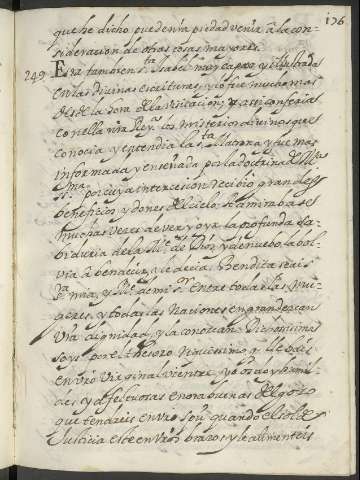 176
que he dicho puede mi piedad venir a la con-
sideracion de otras cosas mayores.
249 Era tambien S.ta Isabel muy capaz, y ilustrada
en las divinas escrituras, y lo fue mucho mas
desde la hora de la visitacion; y assi conferia
con ella nra Reyna los misterios divinos que
conocia y entendia la S.ta Matrona, y fue mas
informada y enseñada por la doctrina de M.a
SS.ma por cuya intercesion recibio grandes
beneficios y dones del cielo. Admirabase
muchas veces de ver y oyr la profunda sa-
biduria de la M.e de Dios, y de nuevo la bol-
via à bendecir, y le decia. Bendita seais
S.ra mia, y M.e de mi S.or entre todas las mu-
geres, y todas las Naciones engrandezcan
vra dignidad, y la conozcan. Dichosissima
soys por el thesoro riquissimo q. lleváis
en vro virginal vientre. yo os doy humil-
des, y afectuosas enorabuenas del goço
que tendreis en vro Spu. quando el sol de
Justicia este en vros braços y le alimenteis